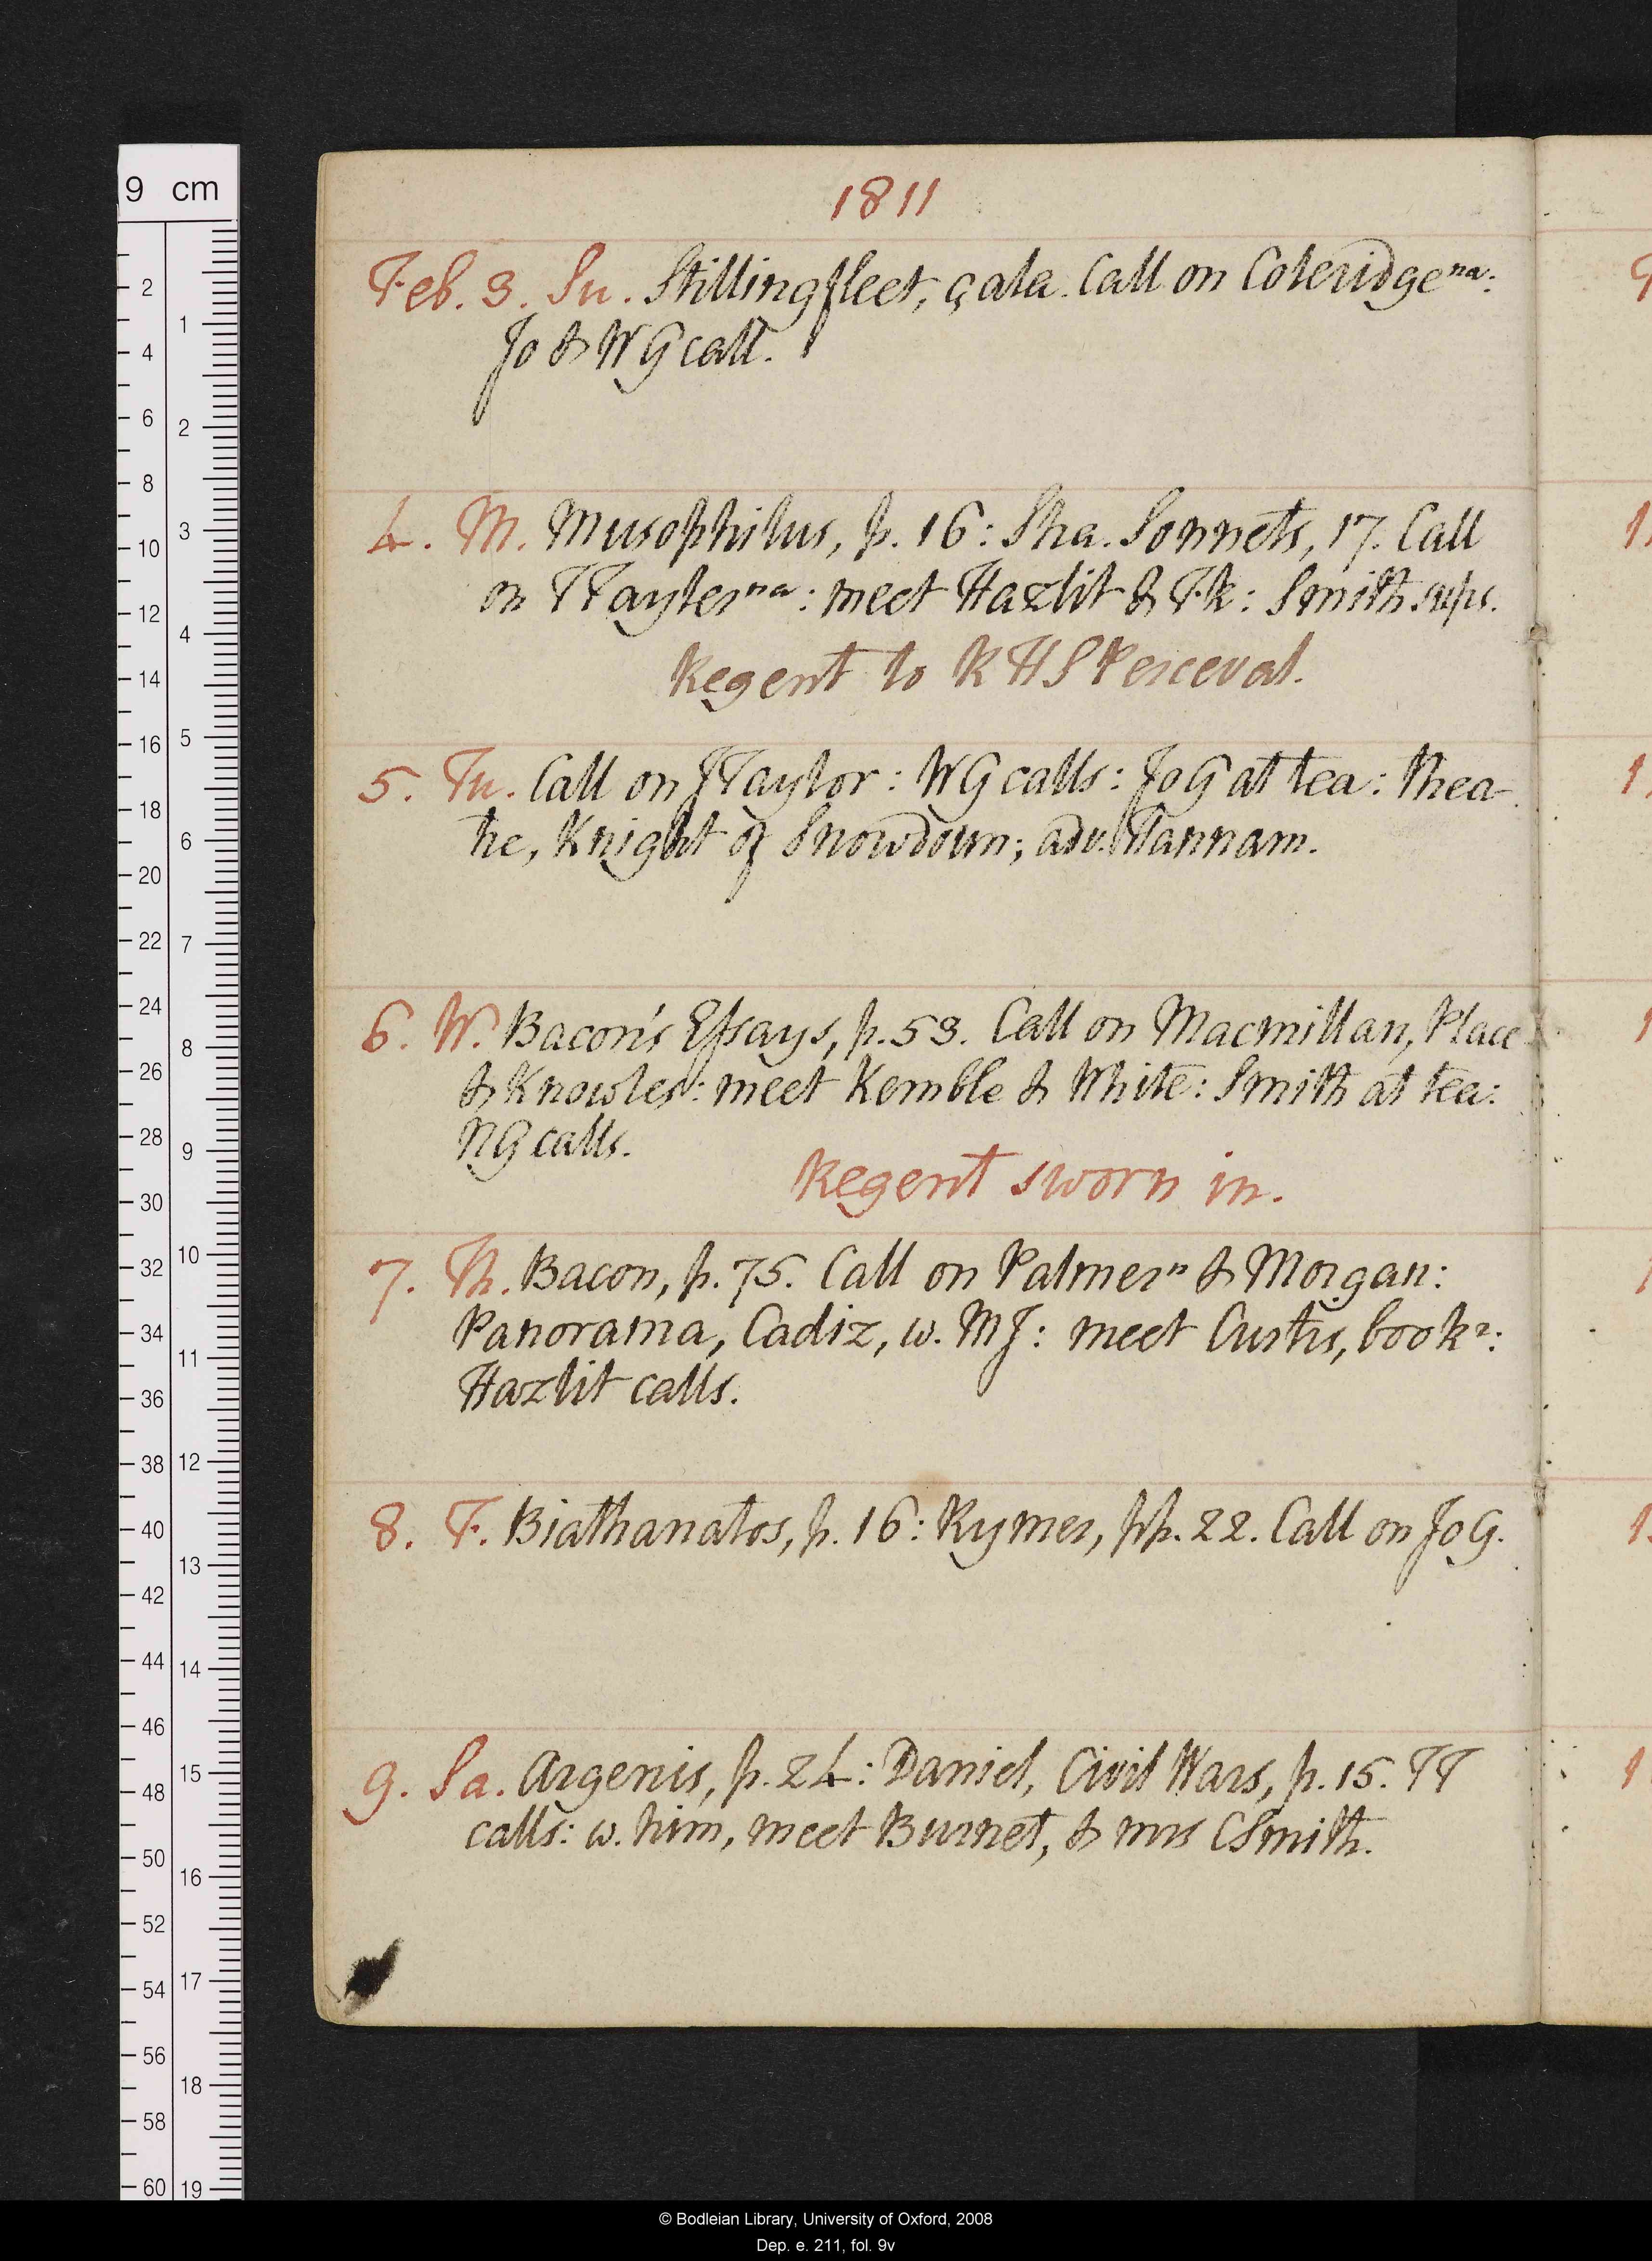 1811
Feb. 3. Su. Stillingfleet, çala. Call on Coleridge na:
Jo & W G call.
4. M. Musophilus, p. 16: Sha. Sonnets, 17. Call
on T Tayler na: meet Hazlit & Fk: Smith sups.
Regent to R H S Perceval.
5. Tu. Call on J Taylor: W G calls: Jo G at tea: Thea-
tre, Knight of Snowdoun; adv. Hannam.
6. W. Bacon's Essays, p. 53. Call on Macmillan, Place
& Knowles: meet Kemble & White: Smith at tea:
N G calls.
Regent sworn in.
7. Th. Bacon, p. 75. Call on Palmer n & Morgan:
Panorama, Cadiz, w. M J: meet Curtis, bookr:
Hazlit calls.
8. F. Biathanatos, p. 16: Rymer, pp. 22. Call on Jo G.
9. Sa. Argenis, p. 24: Daniel, Civil Wars, p. 15. T T
calls: w. him, meet Burnet, & mrs C Smith.
© Bodleian Library, University of Oxford, 2008
Dep. e. 211, fol. 9v